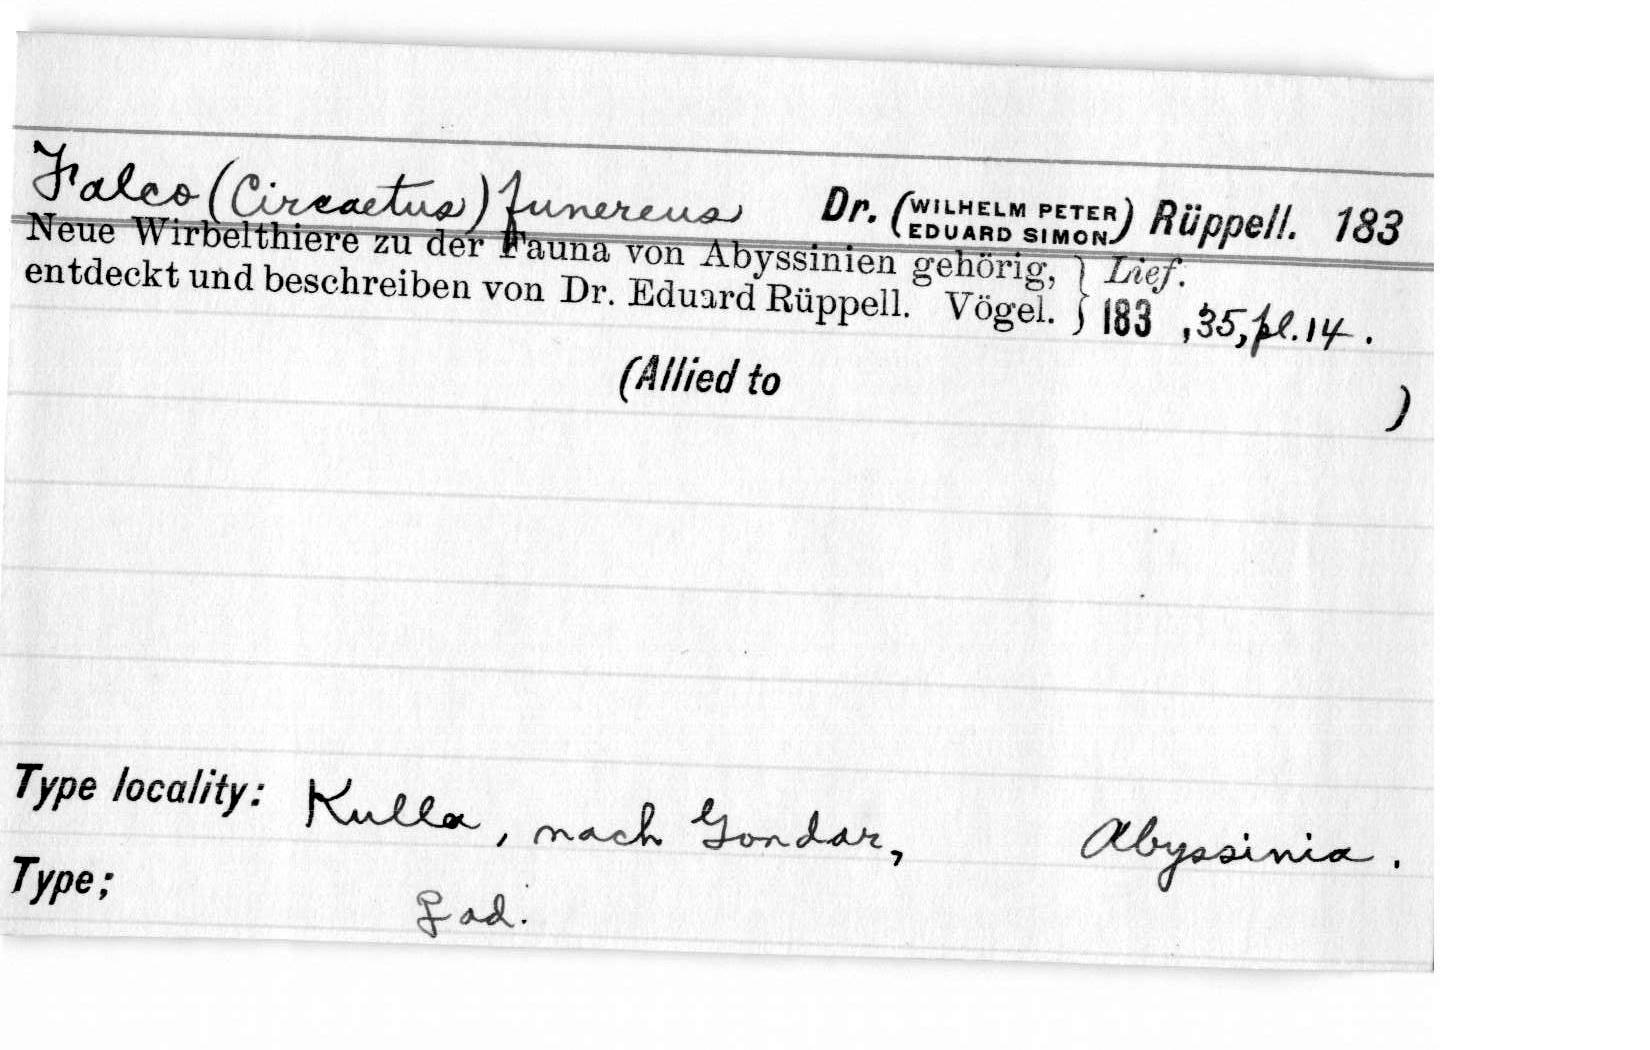 Falco (Circaetus) funereus Dr. (WILHELM PETER EDUARD SIMON) Rüppell. 183
Neue Wirbelthiere zu der Fauna von Abyssinien gehörig, } Lief.
entdeckt und beschreiben von Dr. Eduard Rüppell. Vögel. } 183 , 35, pl. 14 .
(Allied to )
Type locality: Kulla, nach Gondar, Abyssinia.
Type; ad.